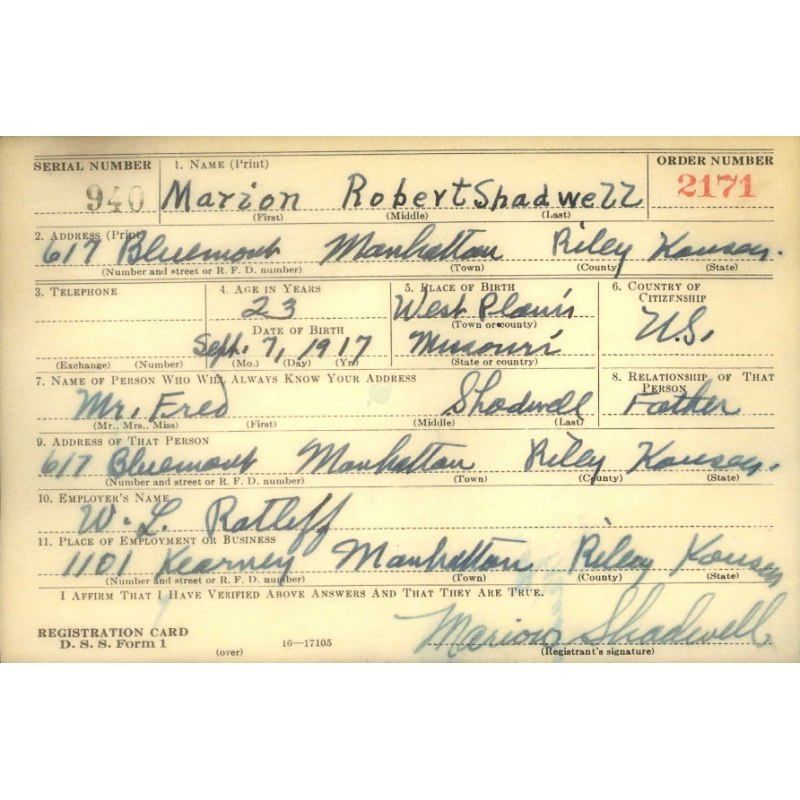 SERIAL NUMBER 1. NAME (Print) ORDER NUMBER
940 Marion Robert Shadwell 2171
(First) (Middle) (Last)
2. ADDRESS (Print)
617 Bluemont Manhattan Riley Kansas.
(Number and street or R. F. D. number) (Town) (County) (State)
3. TELEPHONE 4. AGE IN YEARS 5. PLACE OF BIRTH 6. COUNTRY OF CITIZENSHIP
23 West Plains U.S.
(Town or county)
DATE OF BIRTH
Sept. 7, 1917 Missouri
(Exchange) (Number) (Mo.) (Day) (Yr.) (State or country)
7. NAME OF PERSON WHO WILL ALWAYS KNOW YOUR ADDRESS 8. RELATIONSHIP OF THAT PERSON
Mr. Fred Shadwell Father
(Mr., Mrs., Miss) (First) (Middle) (Last)
9. ADDRESS OF THAT PERSON
617 Bluemont Manhattan Riley Kansas.
(Number and street or R. F. D. number) (Town) (County) (State)
10. EMPLOYER'S NAME
W. L. Ratliff
11. PLACE OF EMPLOYMENT OR BUSINESS
1101 Kearney Manhattan Riley Kansas
(Number and street or R. F. D. number) (Town) (County) (State)
I AFFIRM THAT I HAVE VERIFIED ABOVE ANSWERS AND THAT THEY ARE TRUE.
Marion Shadwell
REGISTRATION CARD
D. S. S. Form 1 16—17105 (Registrant's signature)
(over)